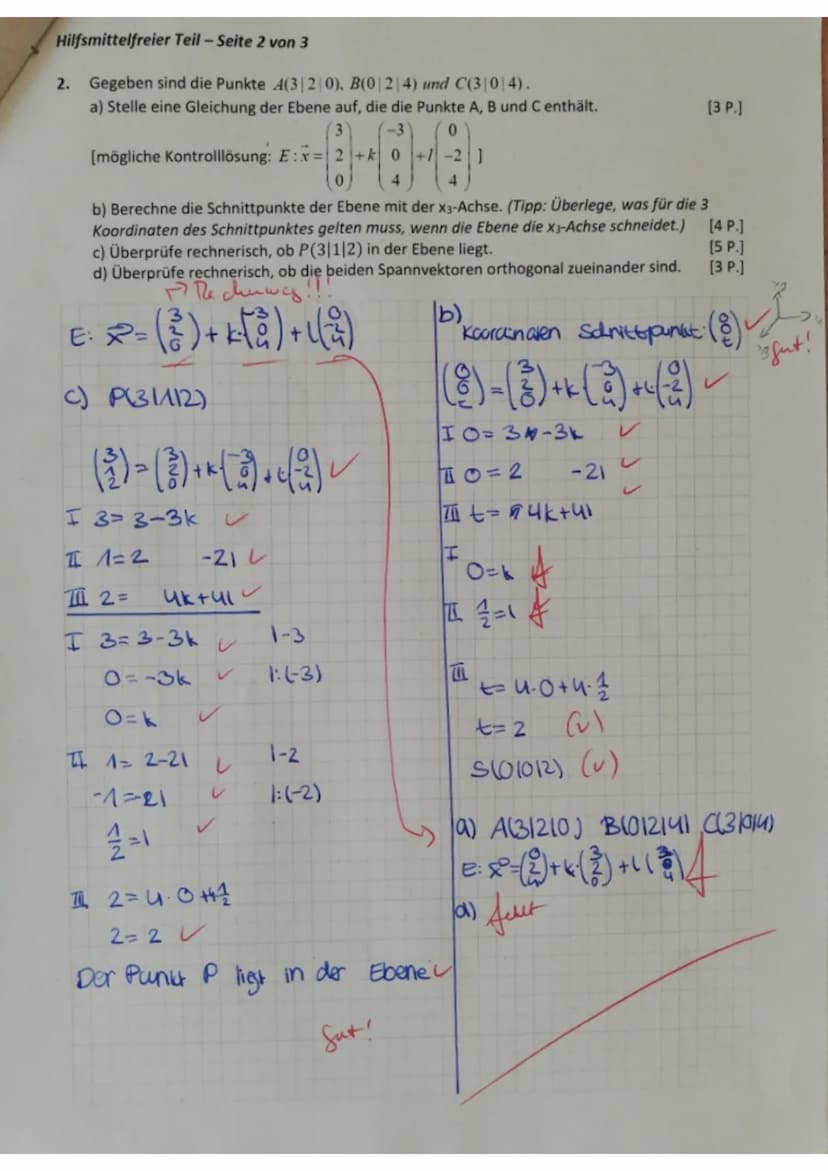 Hilfsmittelfreier Teil – Seite 2 von 3
2. Gegeben sind die Punkte A(3|2|0), B(0|2|4) und C(3|0|4).
a) Stelle eine Gleichung der Ebene auf, die die Punkte A, B und C enthält. [3 P.]
[mögliche Kontrolllösung: E: x⃗ = (3 2 0) + k (−3 0 4) + l (0 −2 4) ]
b) Berechne die Schnittpunkte der Ebene mit der x₃-Achse. (Tipp: Überlege, was für die 3
Koordinaten des Schnittpunktes gelten muss, wenn die Ebene die x₃-Achse schneidet.) [4 P.]
c) Überprüfe rechnerisch, ob P(3|1|2) in der Ebene liegt. [5 P.]
d) Überprüfe rechnerisch, ob die beiden Spannvektoren orthogonal zueinander sind. [3 P.]
→ Rechenweg!!!
E: x⃗ = (3 2 0) + k·(−3 0 4) + l (0 −2 4)
c) P(3|1|2)
(3 1 2) = (3 2 0) + k·(−3 0 4) + l (0 −2 4) ✓
I 3 = 3−3k ✓
II 1 = 2 −2l ✓
III 2 = 4k+4l ✓
I 3 = 3−3k ✓ |−3
0 = −3k ✓ |:(−3)
0 = k ✓
II 1 = 2−2l ✓ |−2
−1 = 2l ✓ |:(−2)
1/2 = l ✓
III 2 = 4·0+4·1/2
2 = 2 ✓
Der Punkt P liegt in der Ebene ✓
Gut!
b) Koordinaten Schnittpunkt: (0 0 t) ✓
Gut!
(0 0 t) = (3 2 0) + k (−3 0 4) + l (0 −2 4) ✓
I 0 = 3 −3k ✓
II 0 = 2 −2l ✓
III t = 4k+4l ✓
I 0 = k
II 1/2 = l
III t = 4·0+4·1/2
t = 2 (✓)
S(0|0|2) (✓)
a) A(3|2|0) B(0|2|4) C(3|0|4)
E: x⃗ = (0 2 4) + k·(3 2 0) + l (3 0 4)
d) fehlt